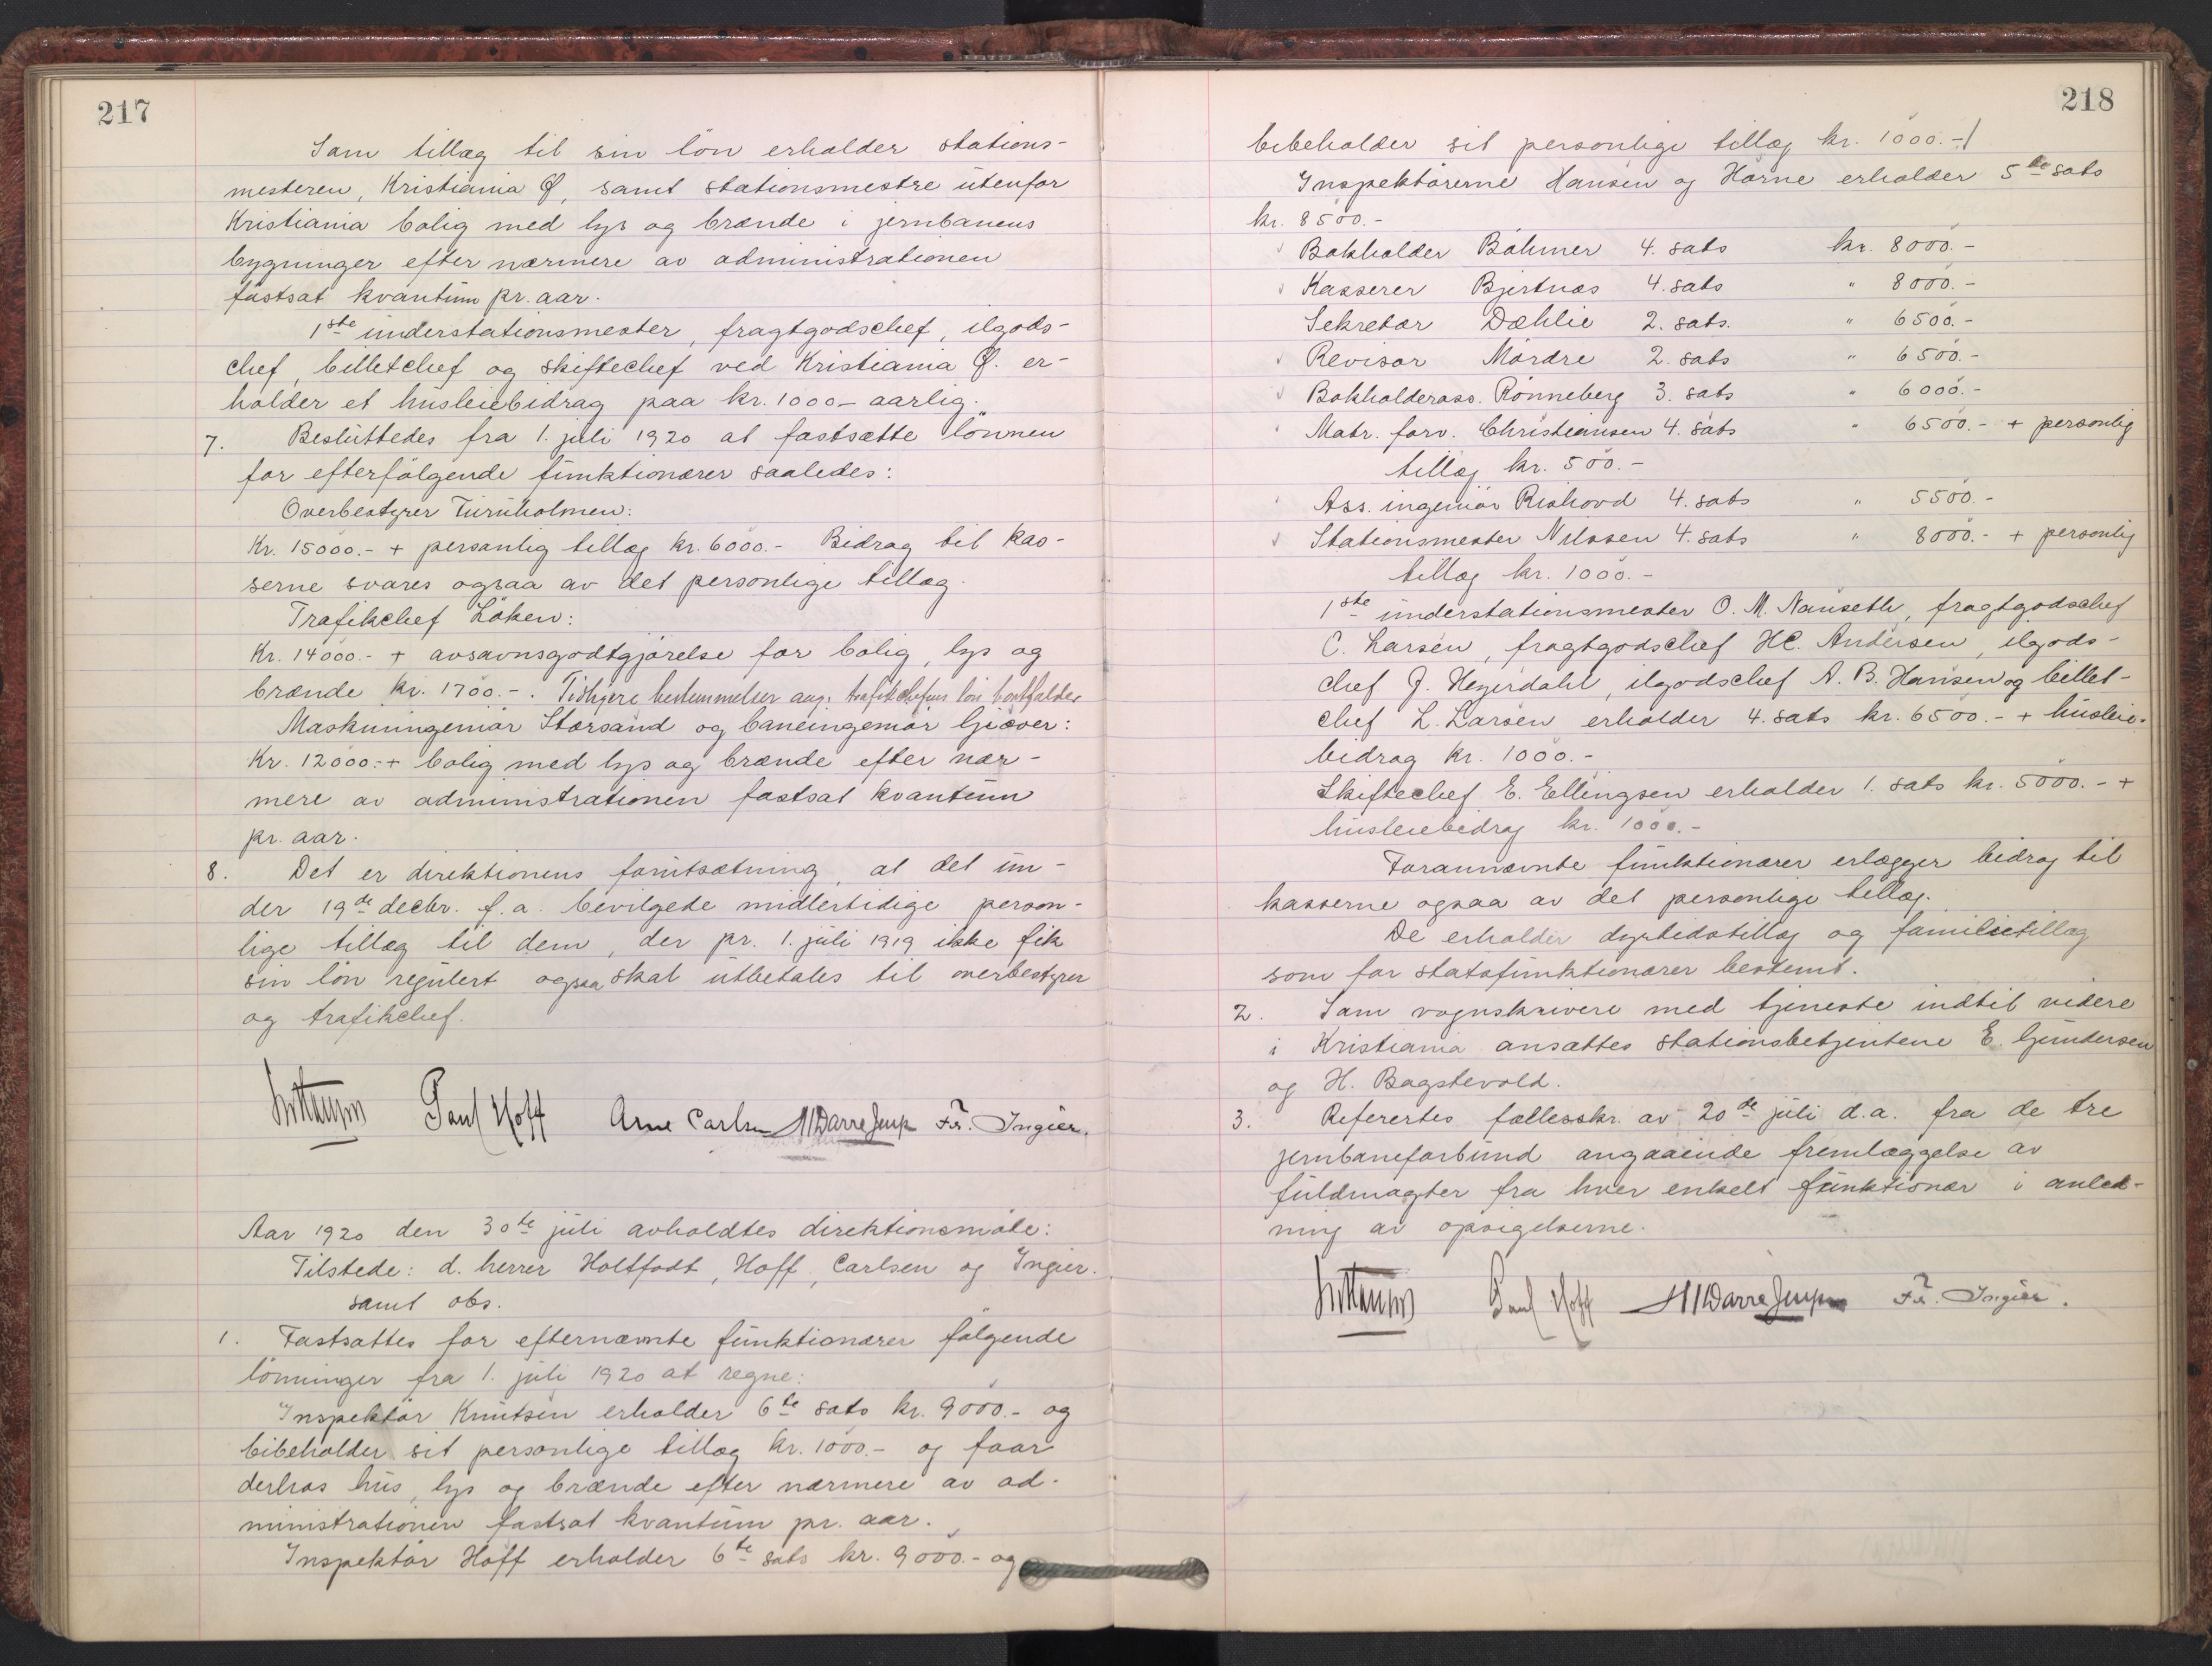 217
Som tillæg til sin lön erholder stations-
mesteren, Kristiania Ø, samt stationsmestre utenfor
Kristiania bolig med lys og brænde i jernbanens
bygninger efter nærmere av administrationen
fastsat kvantum pr. aar.
1ste understationsmester, fragtgodschef, ilgods-
chef, billetchef og skiftechef ved Kristiania Ø. er-
holder et husleiebidrag paa kr. 1000.- aarlig.
7. Besluttedes fra 1. juli 1920 at fastsætte lönnen
for efterfölgende funktionærer saaledes:
Overbestyrer Turnholmen:
Kr. 15000.- + personlig tillæg kr. 6000.- Bidrag til kas-
serne svares ogsaa av det personlige tillæg.
Trafikchef Löken:
Kr. 14000.- + avsavnsgodtgjörelse for bolig, lys og
brænde kr. 1700.-. Tidligere bestemmelser ang. trafikchefens lön bortfalder
Maskiningeniör Storsand og baneingeniör Gjæver:
Kr. 12000.- + bolig med lys og brænde efter nær-
mere av administrationen fastsat kvantum
pr. aar.
8. Det er direktionens forutsætning, at det un-
der 19de decbr. f.a. bevilgede midlertidige person-
lige tillæg til dem, der pr. 1. juli 1919 ikke fik
sin lön regulert ogsaa skal utbetales til overbestyrer
og trafikchef.
Paul Hoff Arne Carlsen Fr. Ingier.
Aar 1920 den 30te juli avholdtes direktionsmöte:
Tilstede: d. herrer Holtfodt, Hoff, Carlsen og Ingier.
samt obs.
1. Fastsattes for efternævnte funktionærer fölgende
lönninger fra 1. juli 1920 at regne:
Inspektör Knutsen erholder 6te sats kr. 9000.- og
bibeholder sit personlige tillæg kr. 1000.- og faar
derhos hus, lys og brænde efter nærmere av ad-
ministrationen fastsat kvantum pr. aar.
Inspektör Hoff erholder 6te sats kr. 9000.- og
218
bibeholder sit personlige tillæg kr. 1000.-/
Inspektörerne Hansen og Horne erholder 5te sats
kr. 8500.-
Bokholder Böhmer 4. sats kr. 8000.-
Kasserer Bjertnæs 4. sats " 8000.-
Sekretær Dæhlie 2. sats. " 6500.-
Revisor Mördre 2. sats " 6500.-
Bokholderass. Rönneberg 3. sats " 6000.-
Matr. forv. Christiansen 4. sats " 6500.- + personlig
tillæg kr. 500.-
Ass. ingeniör Rishovd 4. sats " 5500.-
Stationsmester Nilssen 4. sats " 8000.- + personlig
tillæg kr. 1000.-
1ste understationsmester O. M. Nauseth, fragtgodschef
C. Larsen, fragtgodschef H.C. Andersen, ilgods-
chef J. Heyerdahl, ilgodschef A. B. Hansen og billet-
chef L. Larsen erholder 4. sats kr. 6500.- + husleie-
bidrag kr. 1000.-
Skiftechef E. Ellingsen erholder 1. sats kr. 5000.- +
husleiebidrag kr. 1000.-
Forannævnte funktionærer erlægger bidrag til
kasserne ogsaa av det personlige tillæg.
De erholder dyrtidstillæg og familietillæg
som for statsfunktionærer bestemt.
2. Som vognskrivere med tjeneste indtil videre
i Kristiania ansættes stationsbetjentene E. Gundersen
og H. Bagstevold.
3. Refertes fællesskr. av 20de juli d.a. fra de tre
jernbaneforbund angaaende fremlæggelse av
fuldmagter fra hver enkelt funktionær i anled-
ning av opsigelserne.
Paul Hoff Fr. Ingier.